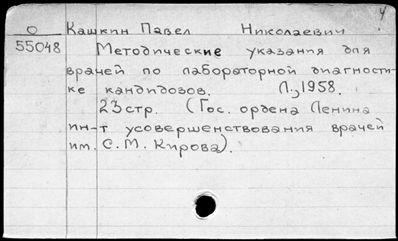 4
О Кашкин Павел Николаевич
55048 Методические указания для
врачей по лабораторной диагности-
ке кандидозов. Л., 1958.
23 стр. (Гос. ордена Ленина
ин-т усовершенствования врачей
им. С. М. Кирова).